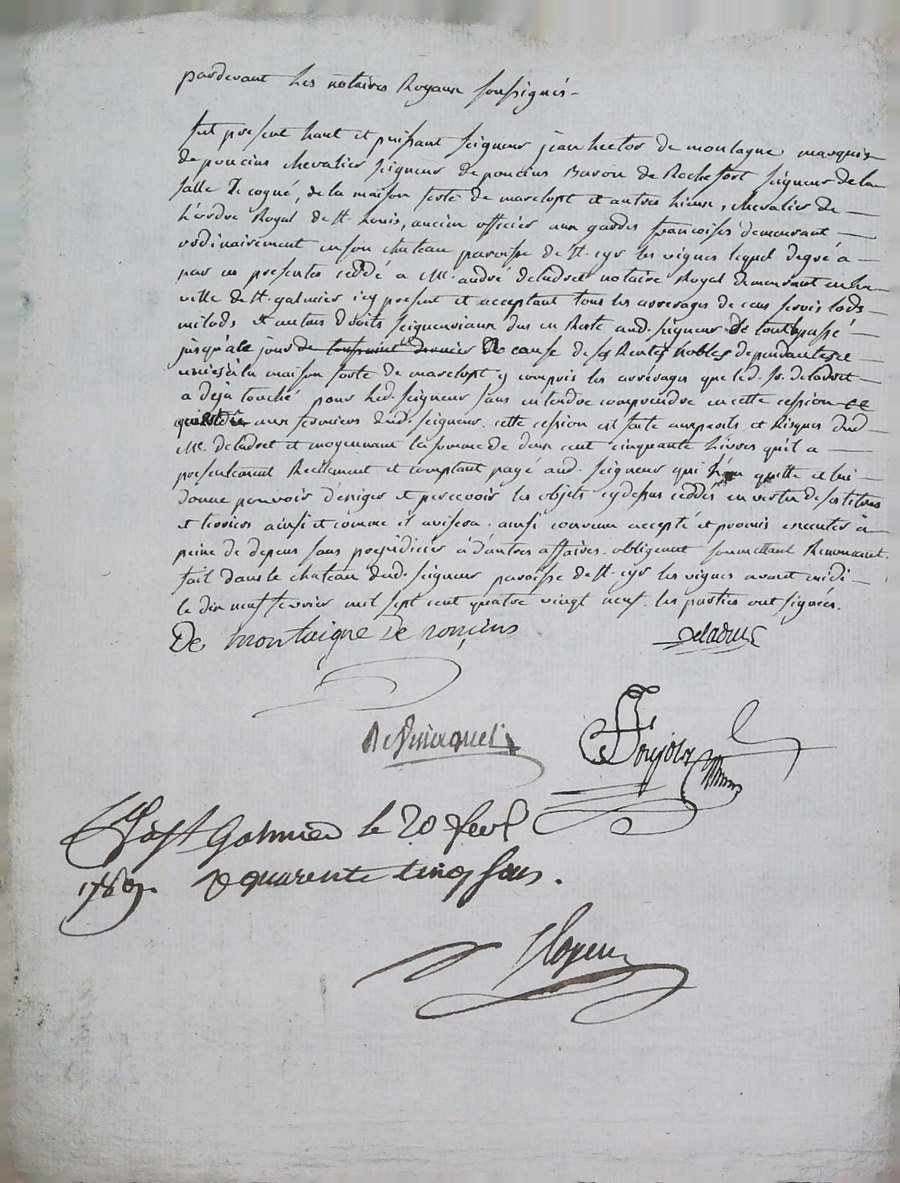 pardevant les notaires Royaux soussignés -
fut present haut et puissant seigneur jean hector de montagne marquis
de poncins chevalier seigneur de poncins Baron de Rochefort seigneur de la
salle de cogné, de la maison forte de marclopt et autres lieux, chevalier de
l'ordre Royal de st. louis, ancien officier aux gardes francoises demeurant
ordinairement en son chateau paroisse de st. cyr les vignes lequel de gré a
par ces presentes cédé a Me. andré deladret notaire Royal demeurant en la
ville de st. galmier icy present et acceptant tous les arrerages de cens servis lods
milods et autres droits seigneuriaux dus en Reste aud. seigneur de tout le passé
jusqu'a ce jour de toussaint dernier a cause de ses Rentes nobles dependantes et
unies a la maison forte de marclopt y compris les arrérages que led. sr. deladret
a deja touché pour led. seigneur sans entendre comprendre en cette cession ce
aux fermiers dud. seigneur. cette cession est faite aux perils et Risques dud.
Me. deladret et moyennant la somme de deux cent cinquante livres qu'il a
presentement Reellement et comptant payé aud. seigneur qui l'en quitte et lui
donne pouvoir d'éxiger et percevoir les objets cy dessus cédés en vertu de ses titres
et terriers ainsi et comme il avisera. ainsi convenu accepté et promis executer a
peine de depens sans prejudicier à d'autres affaires. obligeant soumettant Renonceant.
fait dans le chateau dud. seigneur paroisse de st. cyr les vignes avant midi
le dix neuf fevrier mil sept cent quatre vingt neuf. les parties ont signées.
De montaigne De poncins
Deladret
St Galmier le 20 fevr
1789. R quarente cinq sous.